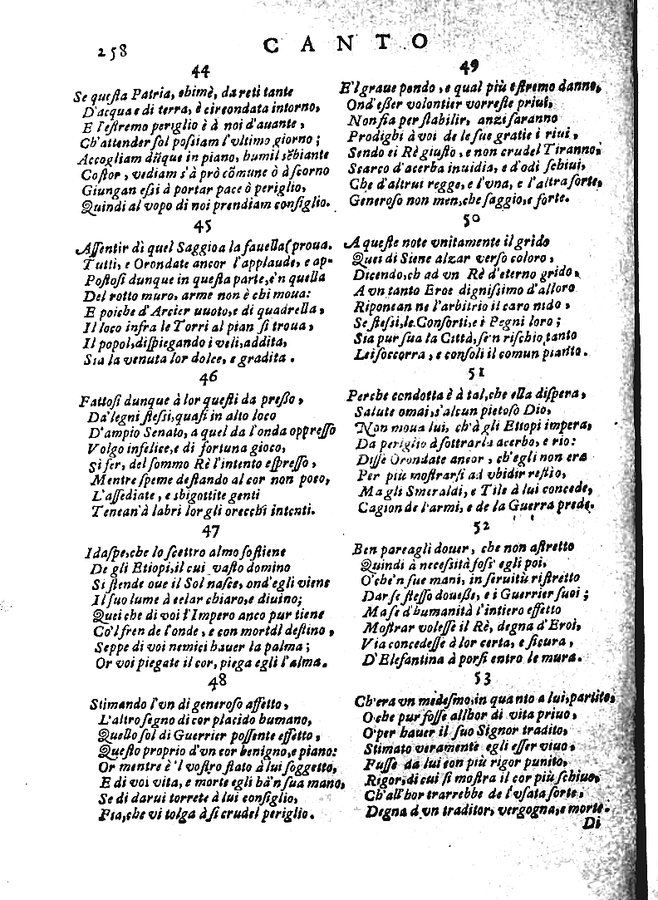 258 CANTO
44
Se questa Patria, ohimè, da reti tante
D'acqua e di terra, è circondata intorno,
E l'estremo periglio è à noi d'auante,
Ch'attender sol possiam l'vltimo giorno;
Accogliam dũque in piano, humil sẽbiante
Costor, vediam s'à prò cõmune ò à scorno
Giungan essi à portar pace ò periglio,
Quindi al vopo di noi prendiam consiglio.
45
Assentir di quel Saggio a la fauella (proua.
Tutti, e Orondate ancor l'applaude, e ap-
Postosi dunque in questa parte, e'n quella
Del rotto muro, arme non è chi moua:
E poiche d'Arcier vuoto, e di quadrella,
Il loco infra le Torri al pian si troua,
Il popol, dispiegando i veli, addita,
Sia la venuta lor dolce, e gradita.
46
Fattosi dunque à lor questi da presso,
Da' legni stessi, quasi in alto loco
D'ampio Senato, a quel da l'onda oppresso
Volgo infelice, e di fortuna gioco,
Si fer, del sommo Rè l'intento espresso,
Mentre speme destando al cor non poco,
L'assediate, e sbigottite genti
Tenean'à labri lor gli orecchi intenti.
47
Idaspe, che lo scettro almo sostiene
De gli Etiopi, il cui vasto domino
Si stende oue il Sol nasce, ond'egli viene
Il suo lume à celar chiaro, e diuino;
Quei che di voi l'Impero anco pur tiene
Co'l fren de l'onde, e con mortal destino,
Seppe di voi nemici hauer la palma;
Or voi piegate il cor, piega egli l'alma.
48
Stimando l'vn di generoso affetto,
L'altro segno di cor placido humano,
Quello sol di Guerrier possente effetto,
Questo proprio d'vn cor benigno, e piano:
Or mentre è 'l vostro stato à lui soggetto,
E di voi vita, e morte egli hà'n sua mano,
Se di darui torrete à lui consiglio,
Fia, che vi tolga à sì crudel periglio.
49
E'l graue pondo, e qual più estremo danno,
Ond'esser volontier vorreste priui,
Non fia per stabilir, anzi saranno
Prodighi à voi de le sue gratie i riui,
Sendo ei Rè giusto, e non crudel Tiranno,
Scarco d'acerba inuidia, e d'odi schiui,
Che d'altrui regge, e l'vna, e l'altra sorte,
Generoso non men, che saggio, e forte.
50
A queste note vnitamente il grido
Quei di Siene alzar verso coloro,
Dicendo, ch ad vn Rè d'eterno grido,
A vn tanto Eroe dignissimo d'alloro
Riponean ne l'arbitrio il caro nido,
Se stessi, le Consorti, e i Pegni loro;
Sia pur sua la Città, se'n rischio tanto
Lei soccorra, e consoli il comun pianto.
51
Perche condotta è à tal, che ella dispera,
Salute omai, s'alcun pietoso Dio,
Non moua lui, ch'à gli Etiopi impera,
Da periglio à sottrarla acerbo, e rio:
Disse Orondate ancor, ch'egli non era
Per più mostrarsi ad vbidir restio,
Ma gli Smeraldi, e Tile à lui concede,
Cagion de l'armi, e de la Guerra prede.
52
Ben pareagli douer, che non astretto
Quindi à necessità foss' egli poi,
O che'n sue mani, in seruitù ristretto
Darse stesso douesse, e i Guerrier suoi;
Ma se d'humanità l'intiero effetto
Mostrar volesse il Rè, degna d'Eroi,
Via concedesse à lor certa, e sicura,
D'Elefantina à porsi entro le mura.
53
Ch'era vn medesmo, in quanto a lui, partito,
O che pur fosse allhor di vita priuo,
O per hauer il suo Signor tradito,
Stimato veramente egli esser viuo,
Fusse da lui con più rigor punito,
Rigor, di cui si mostra il cor più schiuo,
Ch'allhor trarrebbe de l'vsata sorte,
Degna d vn traditor, vergogna, e morte.
Di